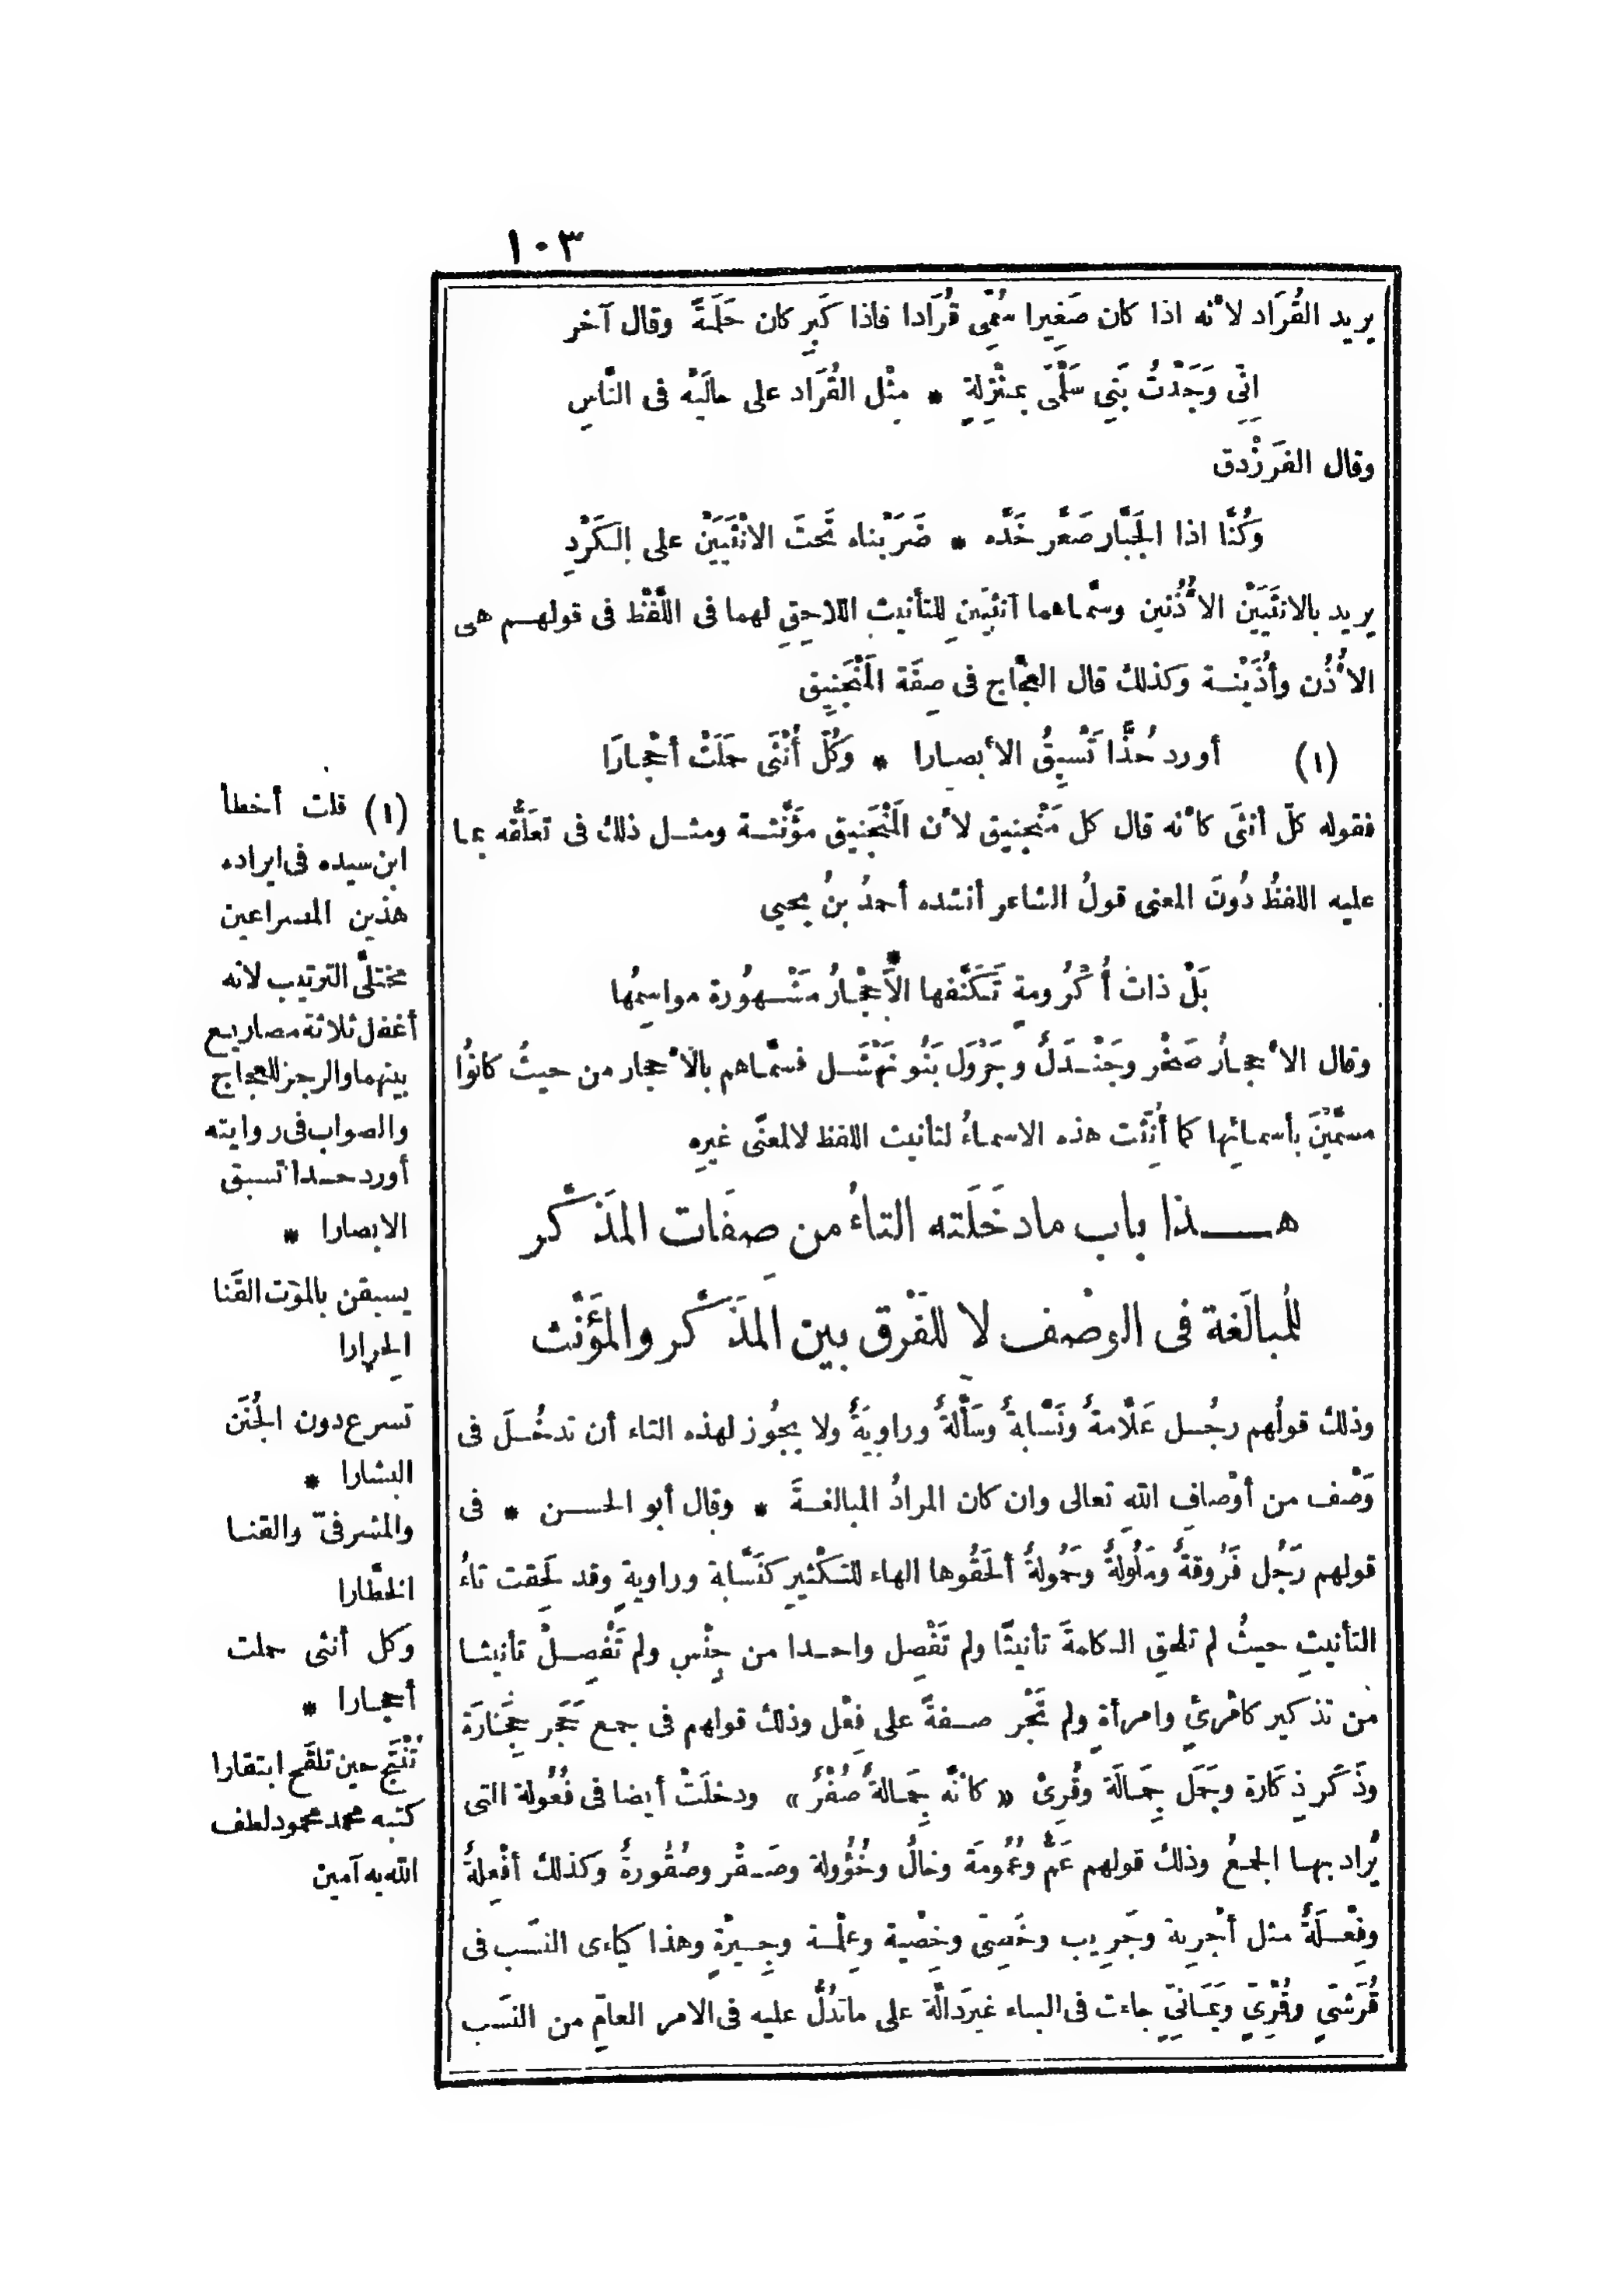 ١٠٣
يريد القُرَاد لأنه اذا كان صَغِيرا سُمِّى قُرَادا فاذا كَبِر كان حَلَمةً وقال آخر
اِنِّى وَجَدْتُ بَنِى سَلْمَى بمنْزِلةٍ * مِثْل القُرَاد على حالَيْه فى النَّاسِ
وقال الفَرَزْدق
وَكُنَّا اذا الجَبَّار صَعَّر خَدَّه * ضَرَبْناه تَحتَ الانْثَيَيْن على الكَرْدِ
يريد بالانثَيَيْن الأُذُنين وسمَّاهما اُنثيَينِ للتأنيث اللاحِقِ لهما فى اللَّفْظ فى قولهم هى
الأُذُن وأُذَيْنة وكذلك قال العجَّاج فى صِفَة المَنْجَنِيق
(١) أورد حُذًّا تَسْبِقُ الأبصارا * وَكُلَّ أُنْثَى حَمَلَتْ أحْجارَا
فقوله كلّ أنثَى كأنه قال كل مَنْجنِيق لأن المَنْجَنِيق مؤنَّثة ومثل ذلك فى تعَلُّقه بما
عليه اللفظُ دُونَ المعنى قولُ الشاعر أنشده أحمدُ بنُ يحيى
بَلْ ذاتُ أُكْرُومةٍ تَكَنَّفها الْأَحْجارُ مَشْهُورة مواسِمُها
وقال الأحجارُ صَخْر وجَنْدَلٌ وجَرْوَل بَنُو نَهْشَل فسمَّاهم بالأحجار من حيثُ كانوُا
مسمَّيْنَ بأسمائِها كما أُنِّثت هذه الاسماءُ لتأنيث اللفظ لالمعنًى غيرِه
هذا باب مادخَلَته التاءُ من صِفَات المذَكَّر
للمُبالَغة فى الوصْف لا للفَرْق بين المذَكَّر والمؤَنَّث
وذلك قولُهم رجُل عَلَّامةٌ ونَسَّابةٌ وسَأَّلةٌ وراوِيَةٌ ولا يجُوز لهذه التاء أن تدخُلَ فى
وَصْف من أوْصافِ اللهِ تعالى وان كان المرادُ المبالغةَ * وقال أبو الحسن * فى
قولهم رَجُل فَرُوقةٌ ومَلُولةٌ وحَمُولةٌ ألحَقُوها الهاء للتكْثيرِ كنَسَّابة وراويةٍ وقد لَحِقت تاءُ
التأنيثِ حيثُ لم تلحَقِ الكلمةَ تأنيثًا ولم تَفْصِل واحدا من جِنْسٍ ولم تَفْصِلْ تأنيثا
من تذكير كامْرئٍ وامرأةٍ ولم تَجْر صفةً على فِعْل وذلك قولهم فى جمع حَجَر حِجَارَة
وذَكَر ذِكَارة وجَمَل جِمَالَة وقُرِئ « كأنَّه جِمَالةٌ صُفْرٌ » ودخلَتْ أيضا فى فُعُولة التى
يُراد بها الجمعُ وذلك قولهم عَمٌّ وعُمُومَة وخالٌ وخُؤُولة وصَقْر وصُقُورةٌ وكذلك أفْعِلةٌ
وفِعْلَةٌ مثل أجْرِبة وجَرِيب وخَصِىّ وخِصْية وغِلْمة وجِيْرةٍ وهذا كياءى النسَب فى
قُرَشىٍّ وقُمْرِىٍّ ويَمَانِىٍّ جاءت فى الياء غيرَ دالَّة على ماتدُلُّ عليه فى الامر العامّ من النسَب
(١) قلت أخطأ
ابن سيده فى ايراده
هذين المصراعين
مختلَّى الترتيب لانه
أغفل ثلاثة مصاريع
بينهما والرجز للعجاج
والصواب فى روايته
أورد حذا تسبق
الابصارا *
يسبقن بالموت القَنا
الحِرارا
تسرع دون الجُنَن
البشارا *
والمشرفىّ والقنا
الخطَّارا
وكل أنثى حملت
أحجارا *
تُنْتَج حين تلقَح ابتقارا
كتبه محمد محمود لطف
الله به آمين